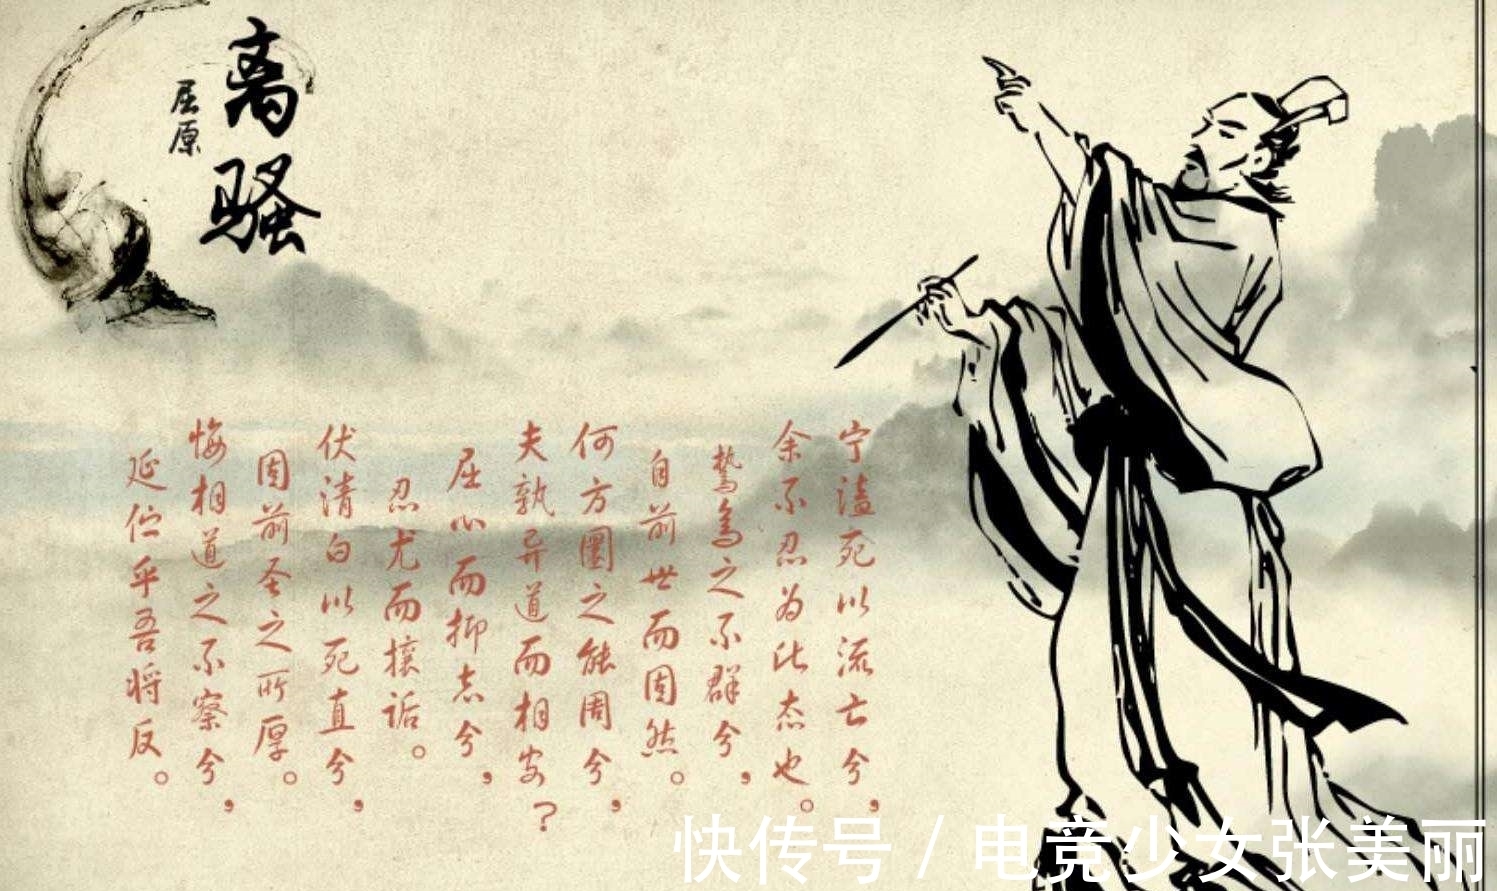 离骚
屈原
宁溘死以流亡兮，
余不忍为此态也。
鸷鸟之不群兮，
自前世而固然。
何方圜之能周兮，
夫孰异道而相安？
屈心而抑志兮，
忍尤而攘诟。
伏清白以死直兮，
固前圣之所厚。
悔相道之不察兮，
延伫乎吾将反。
快传号/电竞少女张美丽